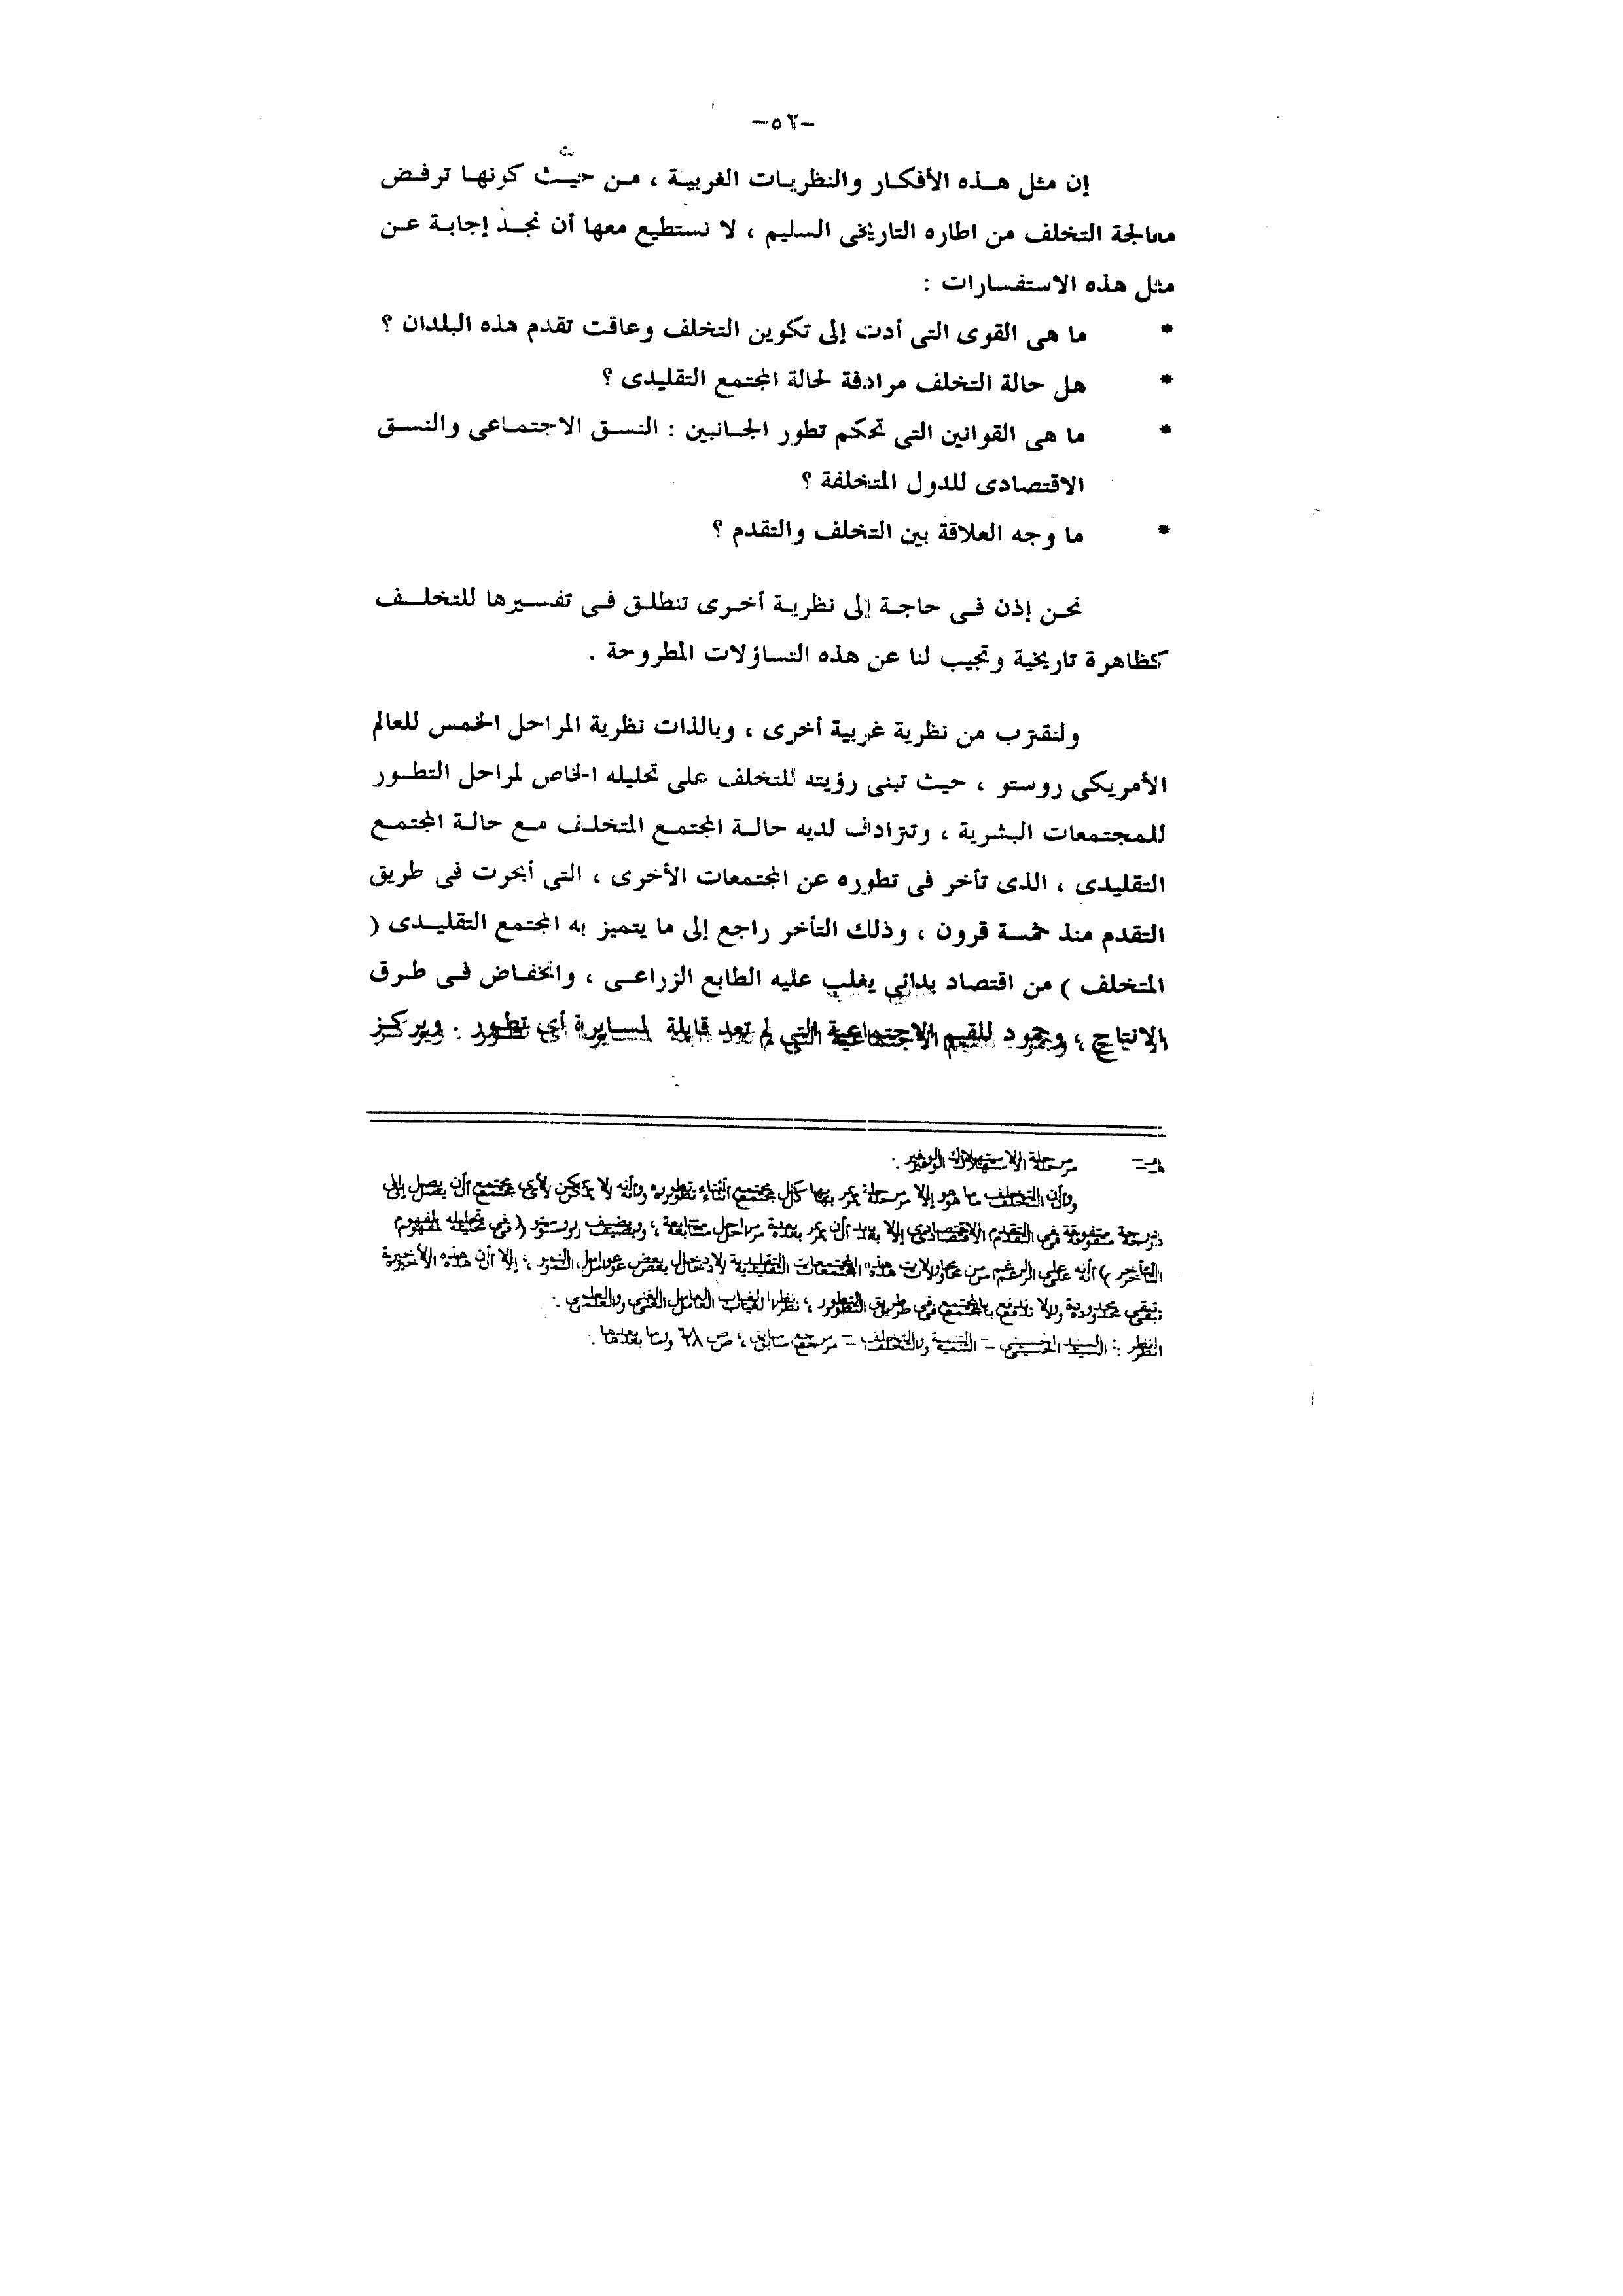 -٥٢-
إن مثل هذه الأفكار والنظريات الغربية ، من حيث كونها ترفض
معالجة التخلف من اطاره التاريخى السليم ، لا نستطيع معها أن نجد إجابة عن
مثل هذه الاستفسارات :
* ما هى القوى التى أدت إلى تكوين التخلف وعاقت تقدم هذه البلدان ؟
* هل حالة التخلف مرادفة لحالة المجتمع التقليدى ؟
* ما هى القوانين التى تحكم تطور الجانبين : النسق الاجتماعى والنسق
الاقتصادى للدول المتخلفة ؟
* ما وجه العلاقة بين التخلف والتقدم ؟
نحن إذن فى حاجة إلى نظرية أخرى تنطلق فى تفسيرها للتخلف
كظاهرة تاريخية وتجيب لنا عن هذه التساؤلات المطروحة .
ولنقترب من نظرية غربية أخرى ، وبالذات نظرية المراحل الخمس للعالم
الأمريكى روستو ، حيث تبنى رؤيته للتخلف على تحليله الخاص لمراحل التطور
للمجتمعات البشرية ، وتترادف لديه حالة المجتمع المتخلف مع حالة المجتمع
التقليدى ، الذى تأخر فى تطوره عن المجتمعات الأخرى ، التى أبحرت فى طريق
التقدم منذ خمسة قرون ، وذلك التأخر راجع إلى ما يتميز به المجتمع التقليدى (
المتخلف ) من اقتصاد بدائي يغلب عليه الطابع الزراعى ، وانخفاض فى طرق
الانتاج ، وجمود للقيم الاجتماعية التي لم تعد قابلة لمسايرة أى تطور . ويركز
٥- مرحلة الاستهلاك الوفير .
وأن التخلف ما هو إلا مرحلة يمر بها كل مجتمع أثناء تطوره وأنه لا يمكن لأى مجتمع أن يصل إلى
درجة متفوقة فى التقدم الاقتصادى إلا بعد أن يمر بعدة مراحل متتابعة ، ويضيف روستو ( فى تحليله لمفهوم
التأخر ) أنه على الرغم من محاولات هذه المجتمعات التقليدية لادخال بعض عوامل النمو ، إلا أن هذه الأخيرة
تبقى محدودة ولا تدفع بالمجتمع فى طريق التطور ، نظرا لغياب العامل الفنى والعلمى .
انظر : السيد الحسينى - التنمية والتخلف - مرجع سابق ، ص ٦٨ وما بعدها .